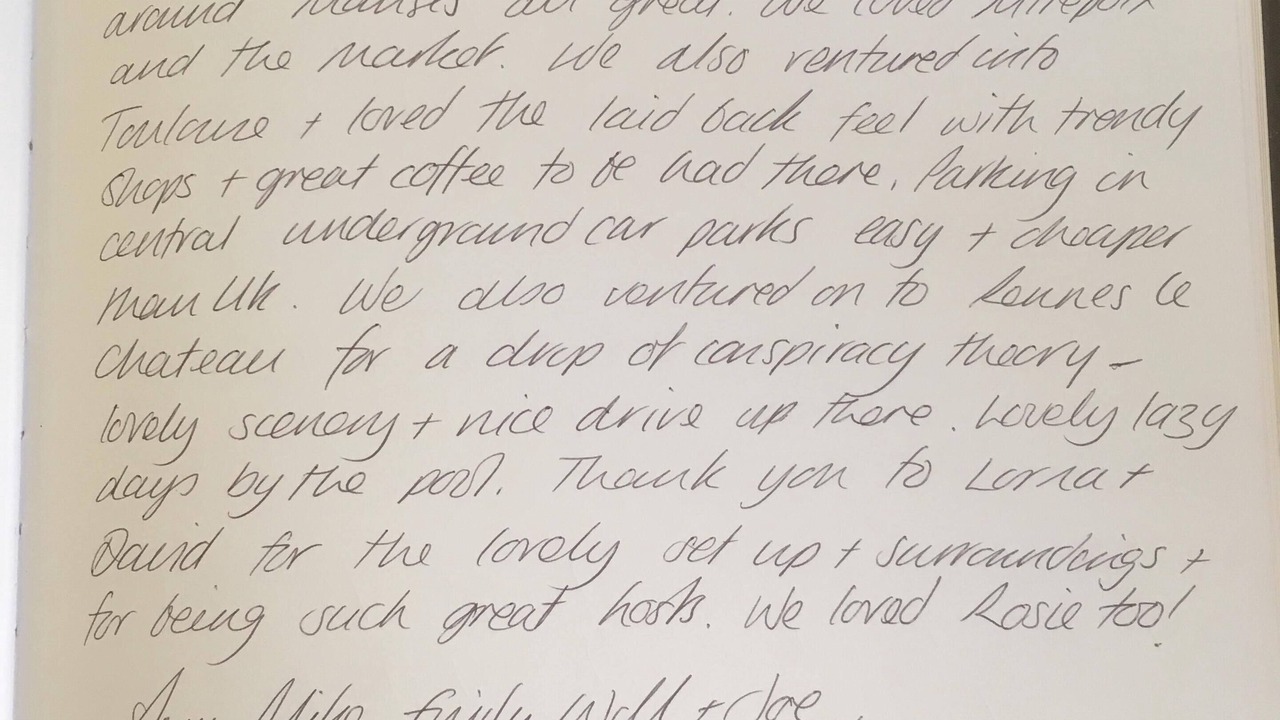 around Manses are great. We loved Mirepoix
and the market. We also ventured into
Toulouse + loved the laid back feel with trendy
shops + great coffee to be had there. Parking in
central underground car parks easy + cheaper
than Uk. We also ventured on to Rennes le
Chateau for a drop of conspiracy theory -
lovely scenery + nice drive up there. Lovely lazy
days by the pool. Thank you to Lorna +
David for the lovely set up + surroundings +
for being such great hosts. We loved Rosie too!
Mike Emily Will + Joe